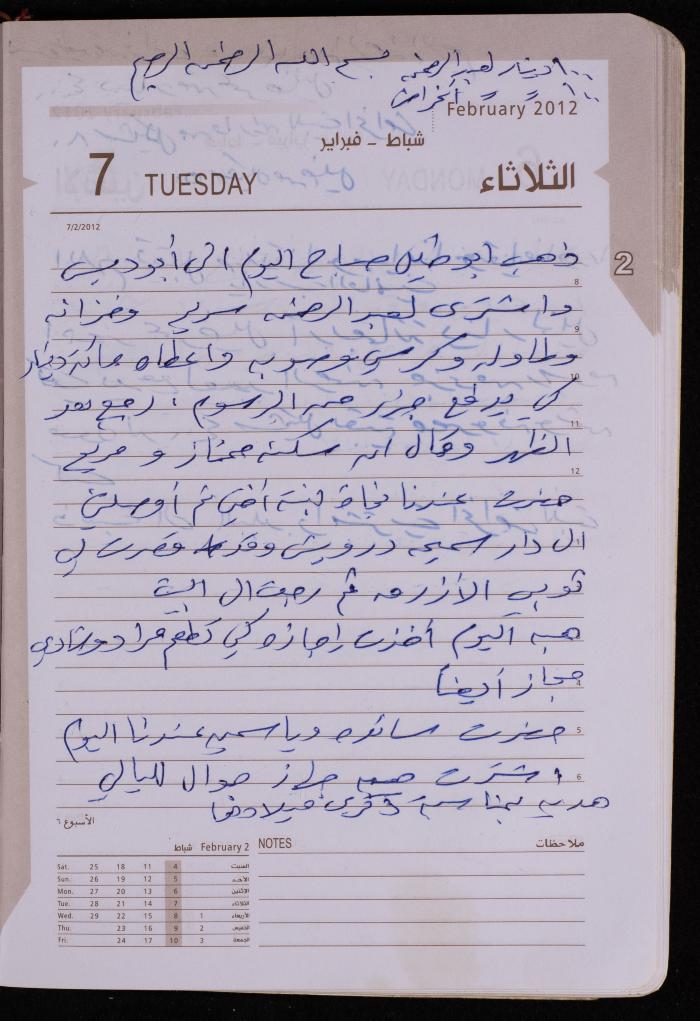 بسم الله الرحمن الرحيم
١٠٠ دينار لعبد الرحمن
١٠٠ أغراض
February 2012
شباط - فبراير
7 TUESDAY الثلاثاء
7/2/2012
2
ذهب أبو خليل صباح اليوم الى أبو ديس
8
واشترى لعبد الرحمن سرير وخزانه
9
وطاوله وكرسي وصوبه واعطاه مائة دينار
10
كي يدفع جزء من الرسوم، رجع بعد
11
الظهر وقال انه سكنه ممتاز و مريح
12
حضرت عندنا نجاة ابنة أختي ثم أوصلتني
1
الى دار سميحه درويش وقد قصرت لي
ثوبي الأزرق ثم رجعت الى البيت
هبه اليوم أخذت إجازه كي تطعم مراد وشادي
مجاز أيضاً
4
حضرت سائده وياسمين عندنا اليوم
5
اشترت هبه جهاز جوال لليالي
6
هديه بمناسبة ذكرى ميلادها
الأسبوع ٦
February 2 شباط
Sat. 25 18 11 4 السبت
Sun. 26 19 12 5 الأحد
Mon. 27 20 13 6 الاثنين
Tue. 28 21 14 7 الثلاثاء
Wed. 29 22 15 8 1 الأربعاء
Thu. 23 16 9 2 الخميس
Fri. 24 17 10 3 الجمعة
NOTES ملاحظات